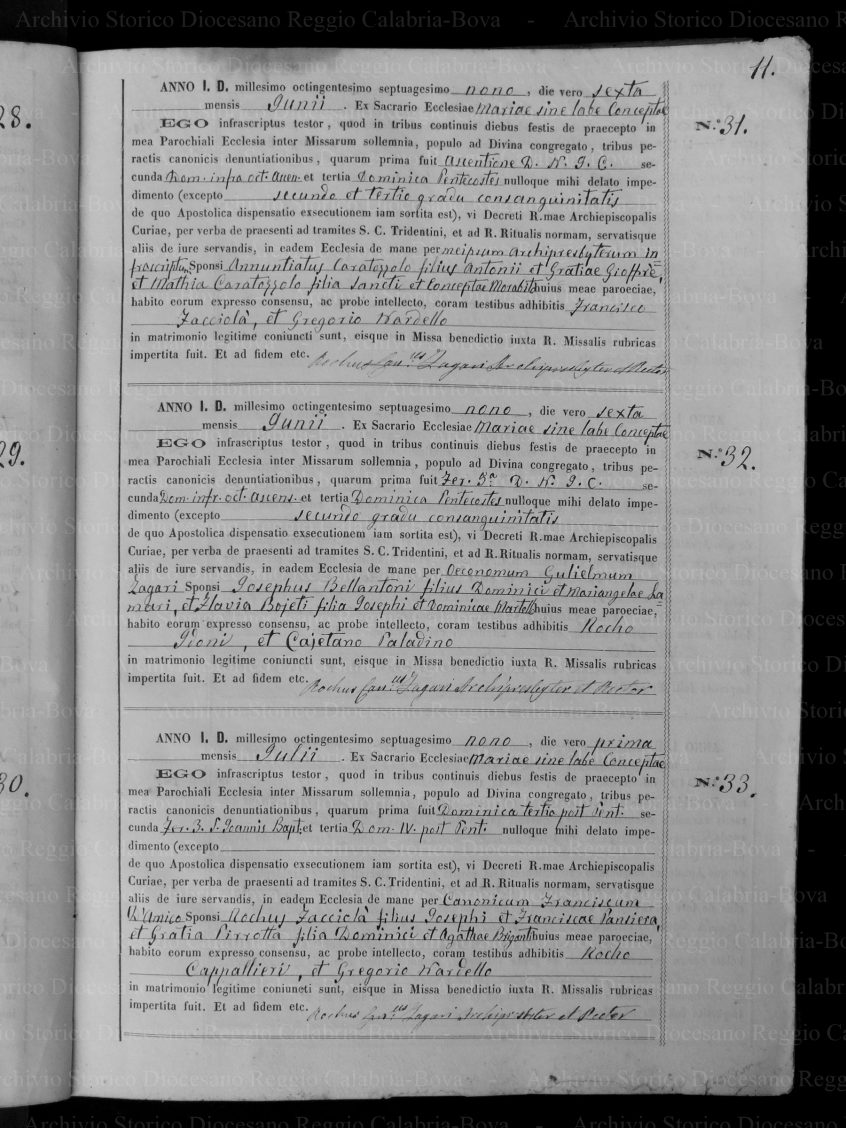 Archivio Storico Diocesano Reggio Calabria-Bova - Archivio Storico Diocesano Reggio
11.
28.
29.
30.
ANNO I. D. millesimo octingentesimo septuagesimo nono, die vero sexta
mensis Junii. Ex Sacrario Ecclesiae Mariae sine labe Conceptae
N.° 31.
EGO infrascriptus testor, quod in tribus continuis diebus festis de praecepto in
mea Parochiali Ecclesia inter Missarum sollemnia, populo ad Divina congregato, tribus pe-
ractis canonicis denuntiationibus, quarum prima fuit Ascentione D. N. J. C. se-
cunda Dom. infra oct. Ascen. et tertia Dominica Pentecostes nulloque mihi delato impe-
dimento (excepto secundo et tertio gradu consanguinitatis
de quo Apostolica dispensatio exsecutionem iam sortita est), vi Decreti R.mae Archiepiscopalis
Curiae, per verba de praesenti ad tramites S. C. Tridentini, et ad R. Ritualis normam, servatisque
aliis de iure servandis, in eadem Ecclesia de mane per meipsum Archipresbyterum in
frascriptum Sponsi Annuntiatus Caratozzolo filius Antonii et Gratiae Gioffrè,
et Mathia Caratozzolo filia Sancti et Conceptae Morabito huius meae paroeciae,
habito eorum expresso consensu, ac probe intellecto, coram testibus adhibitis Francisco
Facciolà, et Gregorio Nardello
in matrimonio legitime coniuncti sunt, eisque in Missa benedictio iuxta R. Missalis rubricas
impertita fuit. Et ad fidem etc. Rochus Can.cus Zagari Archipresbyter et Rector
ANNO I. D. millesimo octingentesimo septuagesimo nono, die vero sexta
mensis Junii. Ex Sacrario Ecclesiae Mariae sine labe Conceptae
N.° 32.
EGO infrascriptus testor, quod in tribus continuis diebus festis de praecepto in
mea Parochiali Ecclesia inter Missarum sollemnia, populo ad Divina congregato, tribus pe-
ractis canonicis denuntiationibus, quarum prima fuit Fer. 5.a D. N. J. C. se-
cunda Dom. infr. oct. Ascens. et tertia Dominica Pentecostes nulloque mihi delato impe-
dimento (excepto secundo gradu consanguinitatis
de quo Apostolica dispensatio exsecutionem iam sortita est), vi Decreti R.mae Archiepiscopalis
Curiae, per verba de praesenti ad tramites S. C. Tridentini, et ad R. Ritualis normam, servatisque
aliis de iure servandis, in eadem Ecclesia de mane per Oeconomum Gulielmum
Zagari Sponsi Josephus Bellantoni filius Dominici et Mariangelae La=
muri, et Flavia Bojeti filia Josephi et Dominicae huius meae paroeciae,
habito eorum expresso consensu, ac probe intellecto, coram testibus adhibitis Rocho
Pioni, et Cajetano Paladino
in matrimonio legitime coniuncti sunt, eisque in Missa benedictio iuxta R. Missalis rubricas
impertita fuit. Et ad fidem etc. Rochus Can.cus Zagari Archipresbyter et Rector
ANNO I. D. millesimo octingentesimo septuagesimo nono, die vero prima
mensis Julii. Ex Sacrario Ecclesiae Mariae sine labe Conceptae
N.° 33.
EGO infrascriptus testor, quod in tribus continuis diebus festis de praecepto in
mea Parochiali Ecclesia inter Missarum sollemnia, populo ad Divina congregato, tribus pe-
ractis canonicis denuntiationibus, quarum prima fuit Dominica tertia post Pent. se-
cunda Fer. 3. S. Joannis Bapt. et tertia Dom. IV. post Pent. nulloque mihi delato impe-
dimento (excepto
de quo Apostolica dispensatio exsecutionem iam sortita est), vi Decreti R.mae Archiepiscopalis
Curiae, per verba de praesenti ad tramites S. C. Tridentini, et ad R. Ritualis normam, servatisque
aliis de iure servandis, in eadem Ecclesia de mane per Canonicum Franciscum
D'Amico Sponsi Rochus Facciolà filius Josephi et Franciscae Pansiera,
et Gratia Pirrotta filia Dominici et Agathae Briganti huius meae paroeciae,
habito eorum expresso consensu, ac probe intellecto, coram testibus adhibitis Rocho
Cappallieri, et Gregorio Nardello
in matrimonio legitime coniuncti sunt, eisque in Missa benedictio iuxta R. Missalis rubricas
impertita fuit. Et ad fidem etc. Rochus Can.cus Zagari Archipresbyter et Rector
Archivio Storico Diocesano Reggio Calabria-Bova - Archivio Storico Diocesano Reggio